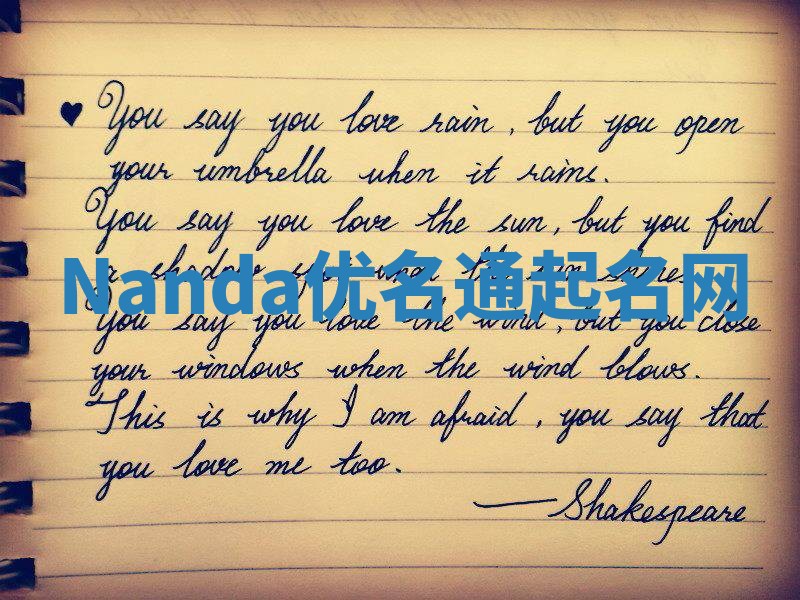 ♥ You say you love rain, but you open
your umbrella when it rains.
You say you love the sun, but you find
a shadow spot when the sun shines.
Nanda优名通起名网
You say you love the wind, but you close
your windows when the wind blows.
This is why I am afraid, you say that
you love me too.
— Shakespeare